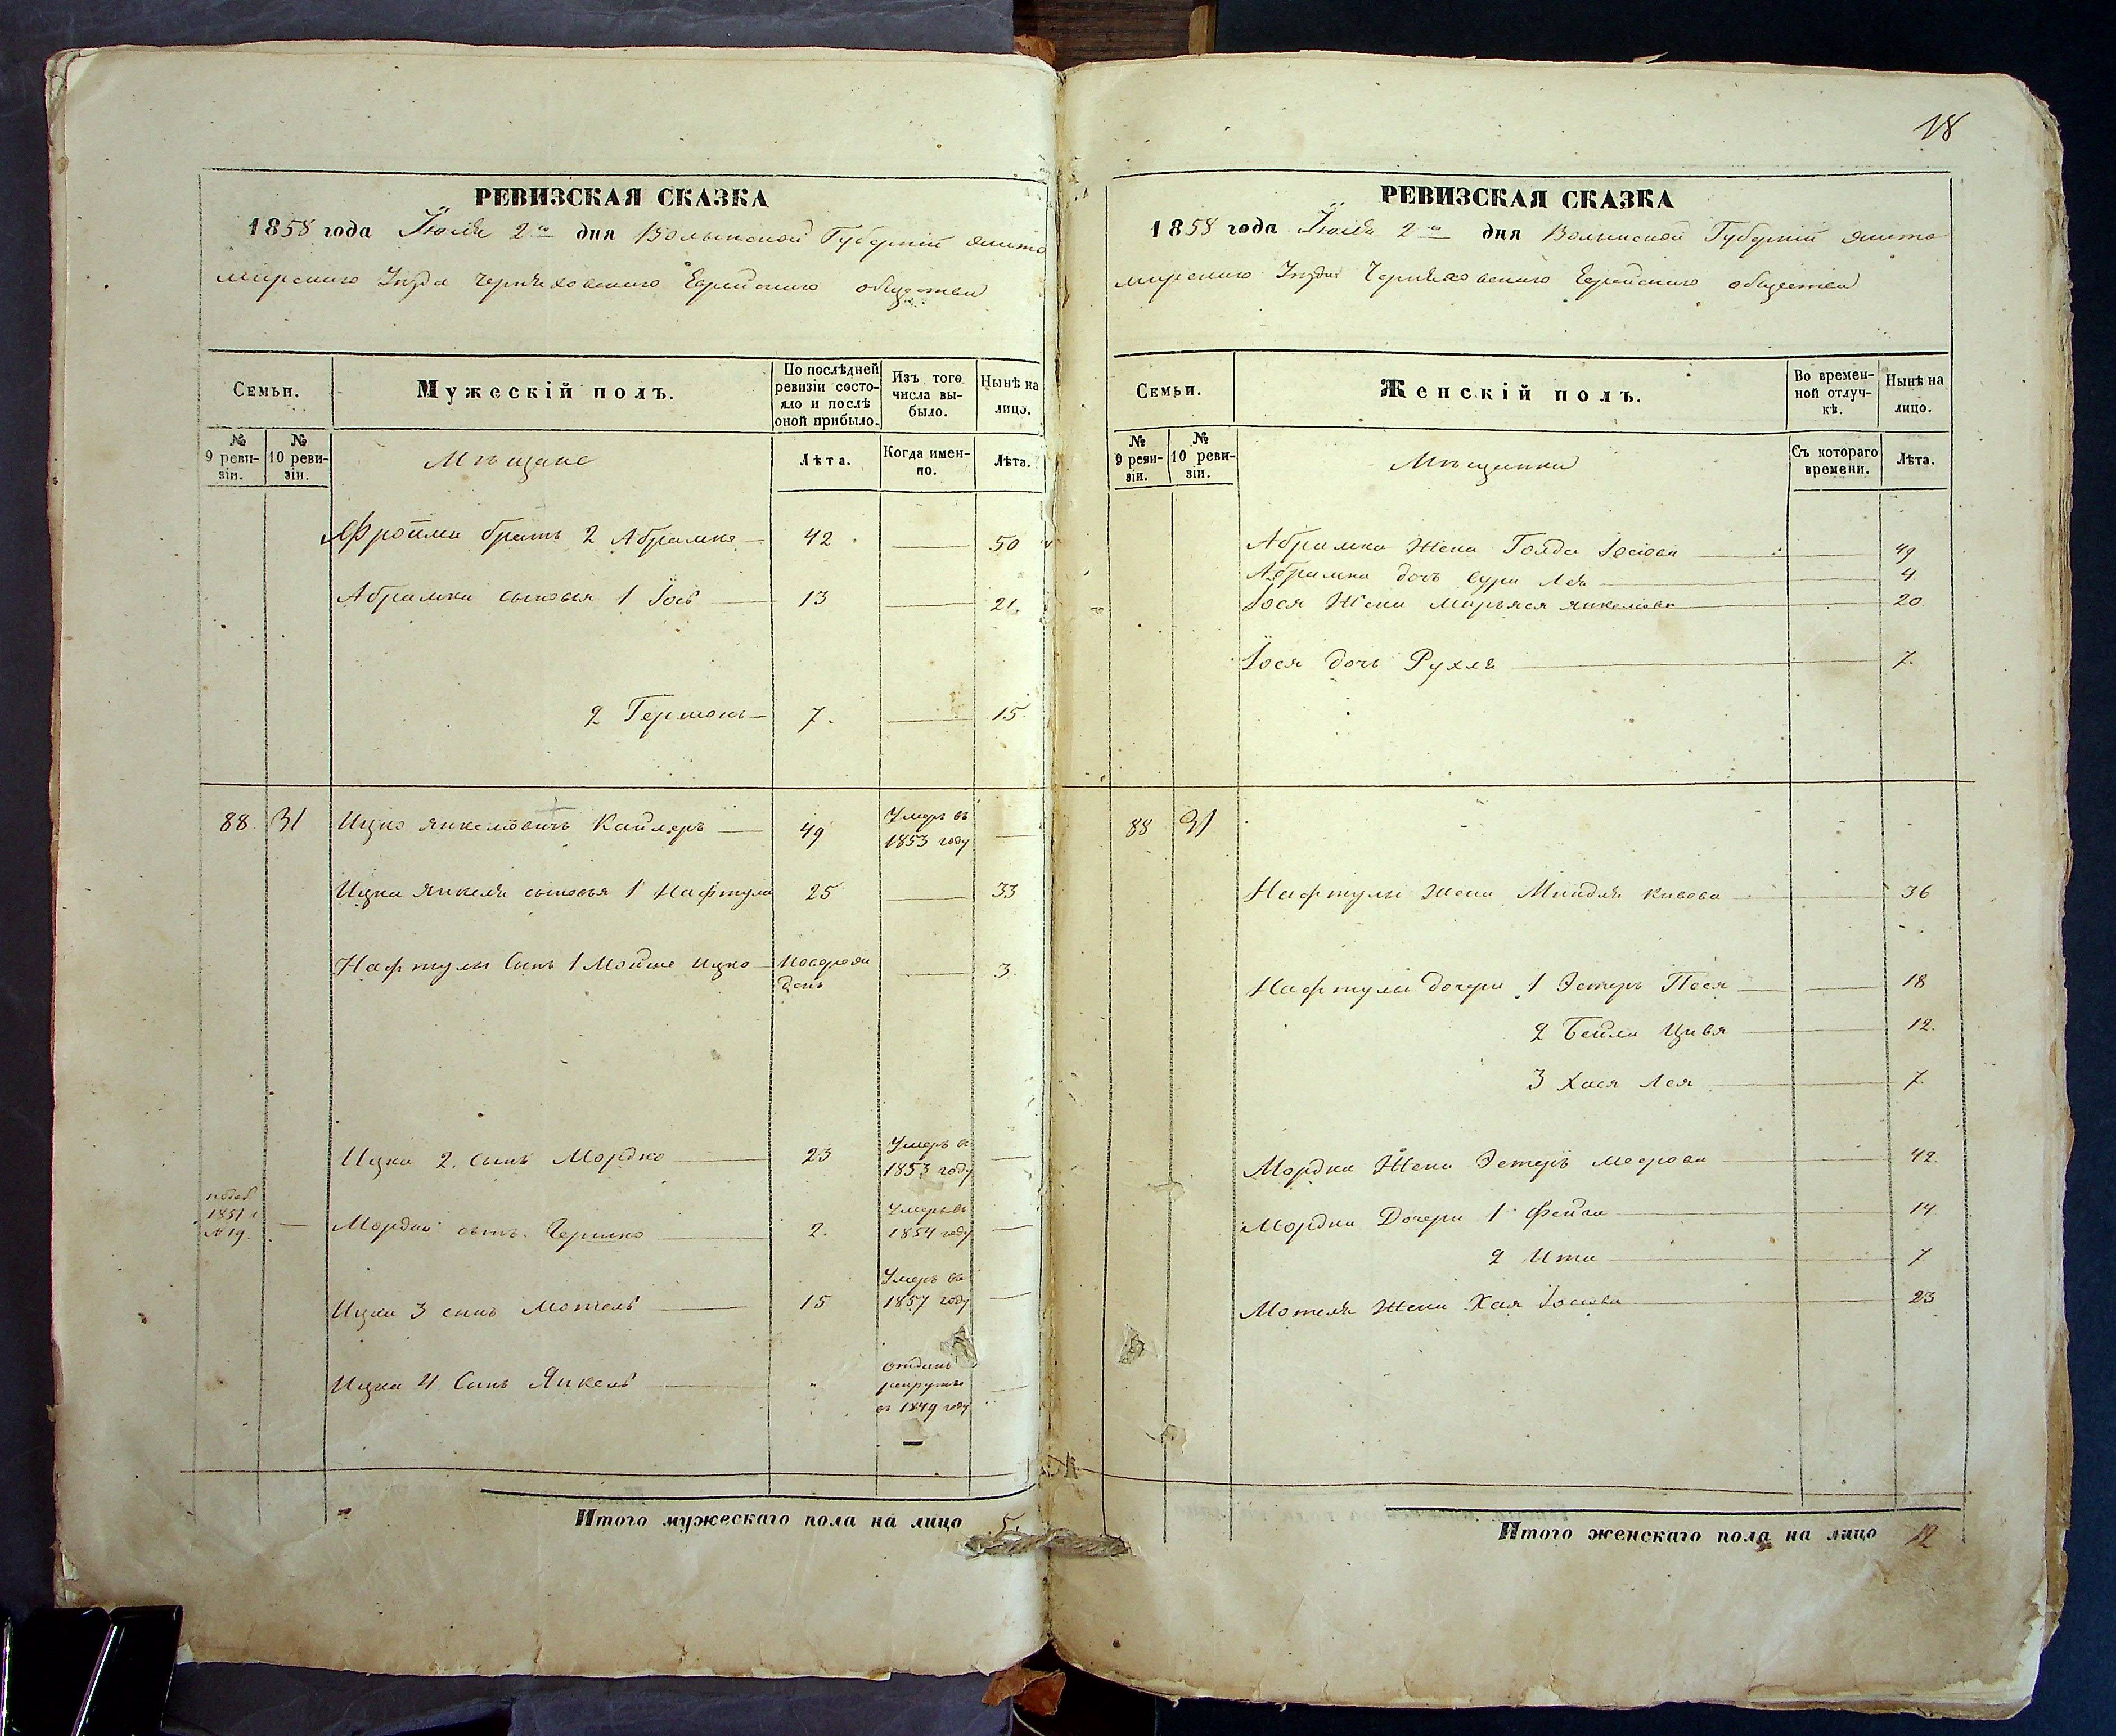 18
РЕВИЗСКАЯ СКАЗКА
1858 года Іюля 2го дня Волынской Губерніи Жито
мирскаго Уѣзда Черняховскаго Еврейскаго общества
Семьи.
Мужескій полъ.
По послѣдней ревизіи состо-яло и послѣ оной прибыло.
Изъ того числа вы-было.
Нынѣ на лицо.
№ 9 реви-зіи.
№ 10 реви-зіи.
Мѣщане
Лѣта.
Когда имен-но.
Лѣта.
Фройма братъ 2 Абрамко 42 50
Абрамка сыновья 1 Іось 13 21.
2 Гершонъ 7. 15.
88. 31 Ицко Янкелевичъ Кайлеръ 49 Умеръ въ 1853 году
Ицка Янкеля сыновья 1 Нафтула 25 33
Нафтулы сынъ 1 Мойше Ицко 3.
Ицки 2. сынъ Мордко 23 Умеръ въ 1853 году
1851 г. №19.
Мордки сынъ 2. Умеръ въ 1854 году
Ицки 3 сынъ Мотель 15 Умеръ въ 1857 году
Ицка 4 Сынъ Янкель " отданъ рекруты въ 1849 году
Итого мужескаго пола на лицо 5.
РЕВИЗСКАЯ СКАЗКА
1858 года Іюля 2го дня Волынской Губерніи Жито
мирскаго Уѣзда Черняховскаго Еврейскаго общества
Семьи.
Женскій полъ.
Во времен-ной отлуч-кѣ.
Нынѣ на лицо.
№ 9 реви-зіи.
№ 10 реви-зіи.
Мѣщанки
Съ котораго времени.
Лѣта.
Абрамка Жена Голда Іосіова 49
Абрамка дочь Сура Лея 4
Іося Жена Марьяся Янкеліова 20.
Іося дочь Рухля 7.
88 31
Нафтулы жена Миндля Кивова 36
Нафтулы дочери 1 Эстеръ Песя 18
2 Бейла Цивя 12.
3 Хася Лея 7.
Мордки Жена Эстеръ Меерова 42.
Мордки Дочери 1 Фейга 14
2 Ита 7
Мотеля Жена Хая Іосіова 23
Итого женскаго пола на лицо 12